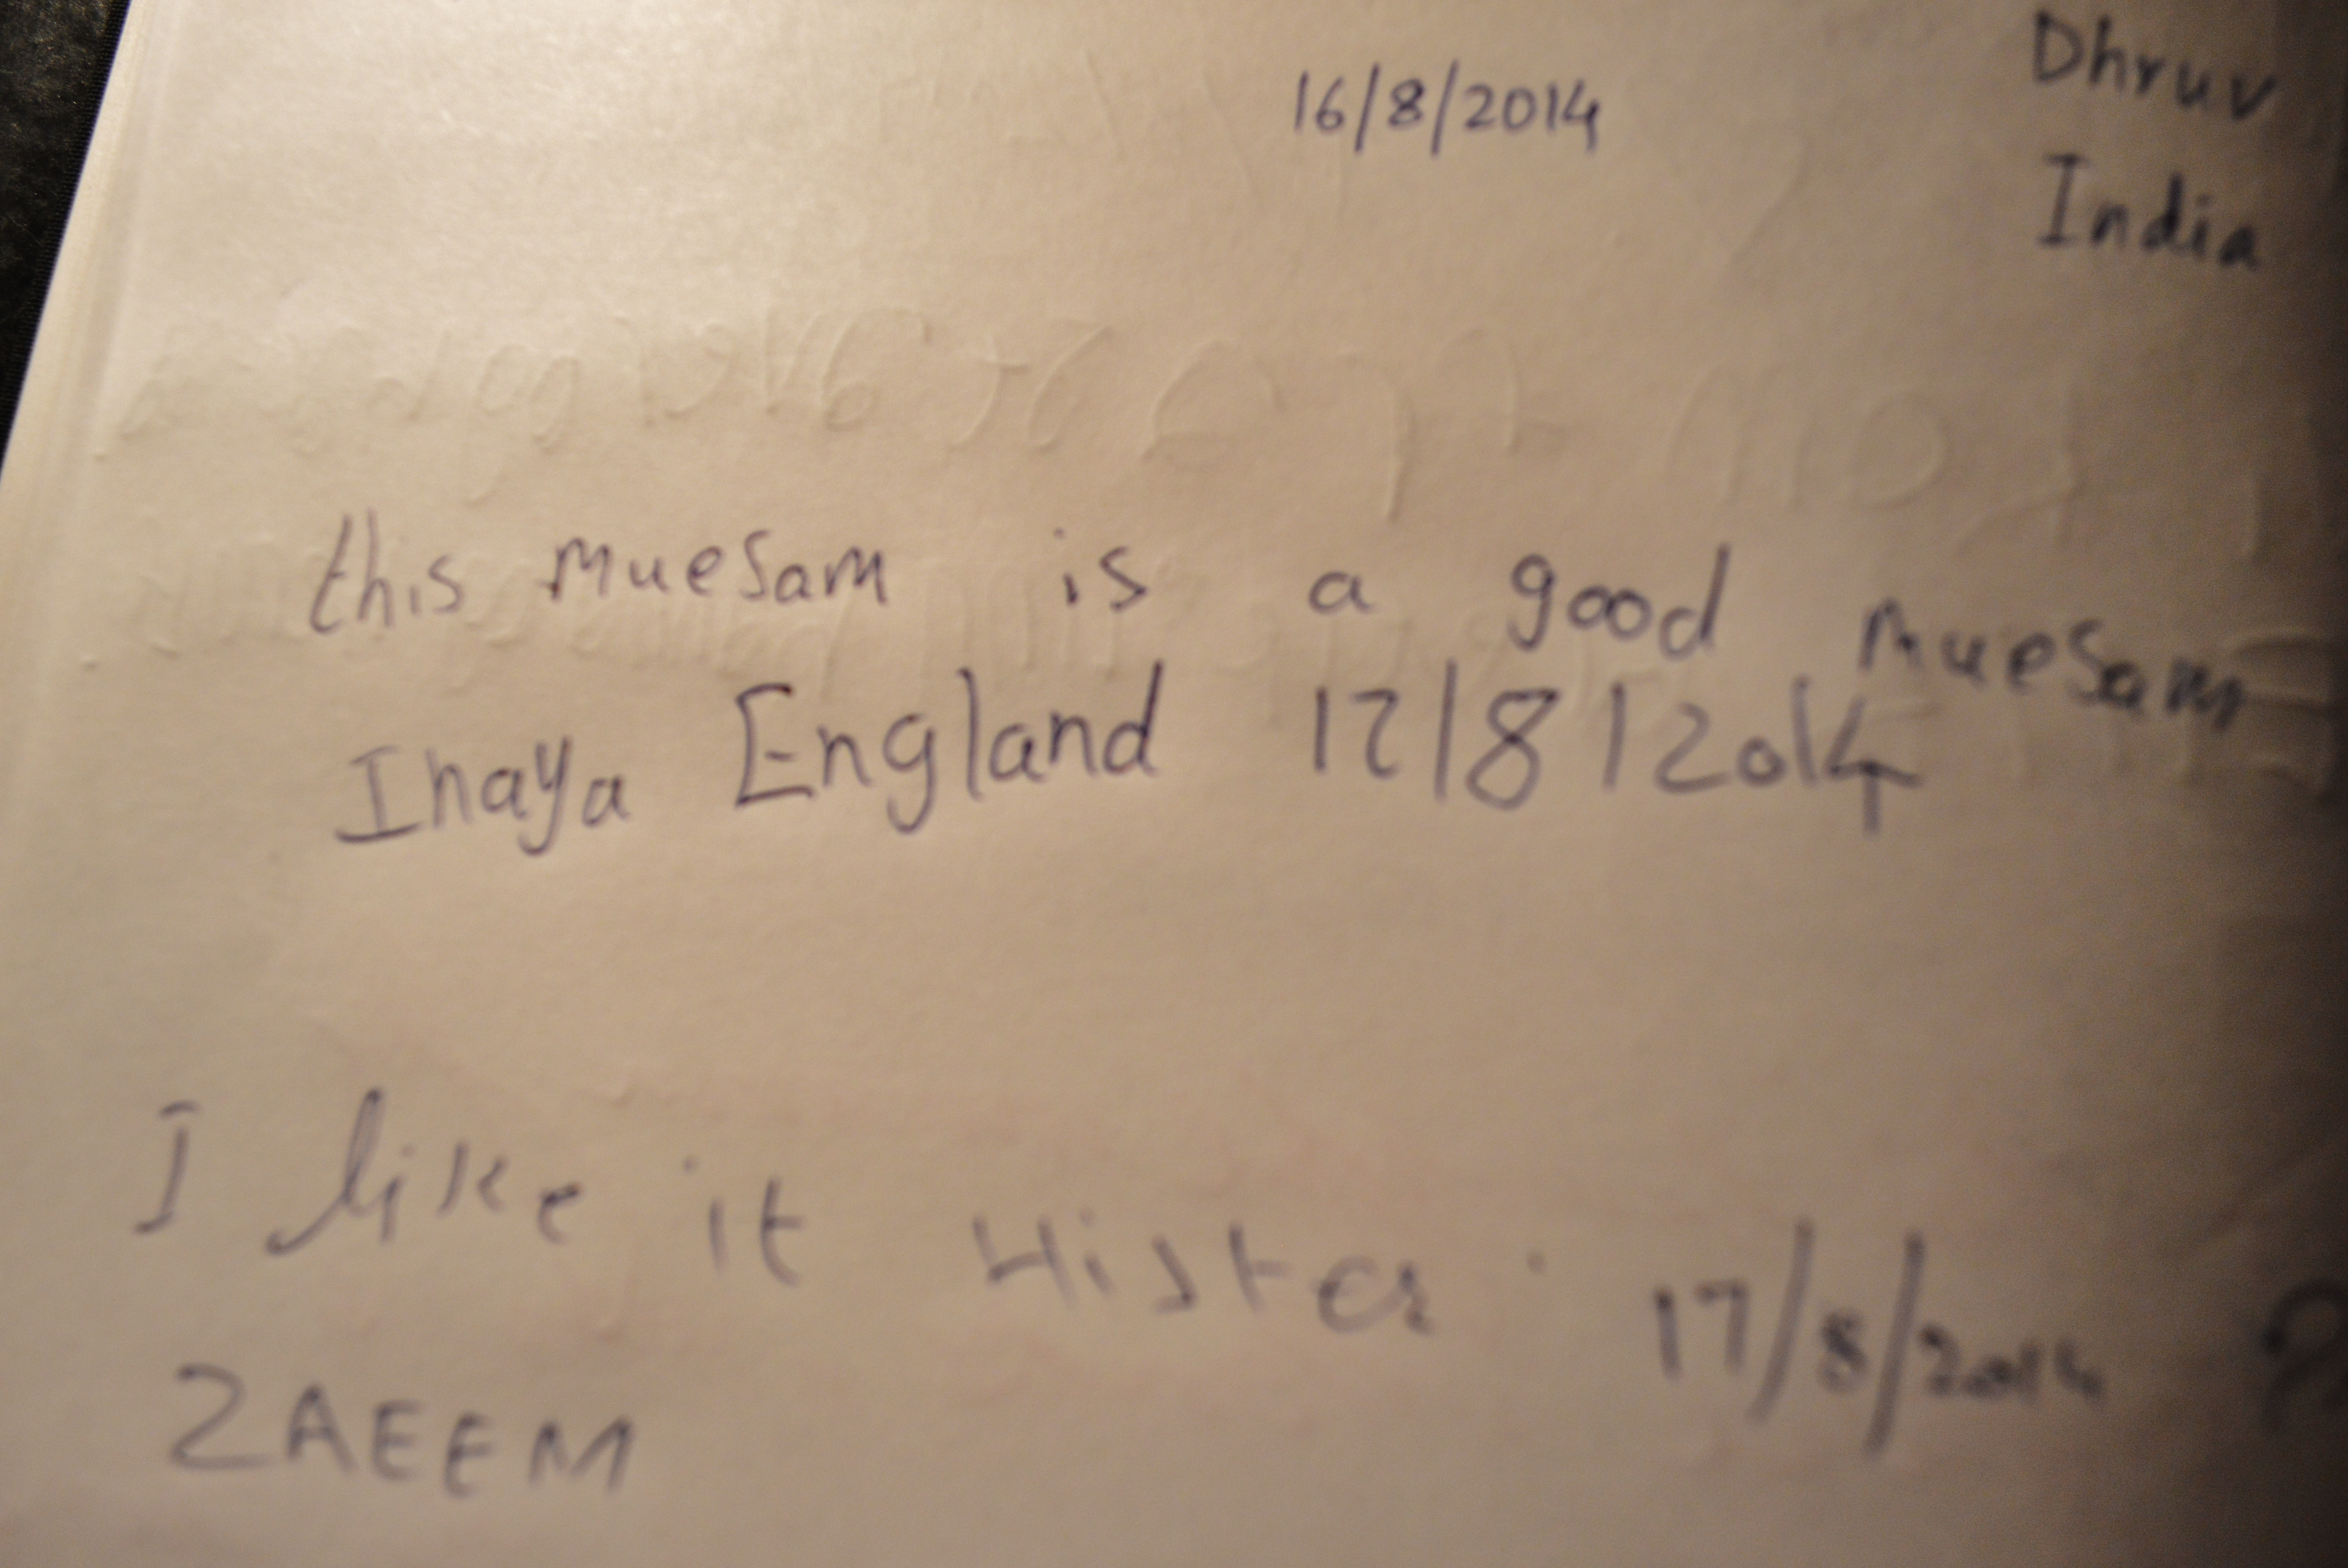 16/8/2014 Dhruv
India
this muesam is a good muesam
Inaya England 17/8/2014
I like it Hister. 17/8/2014
ZAEEM